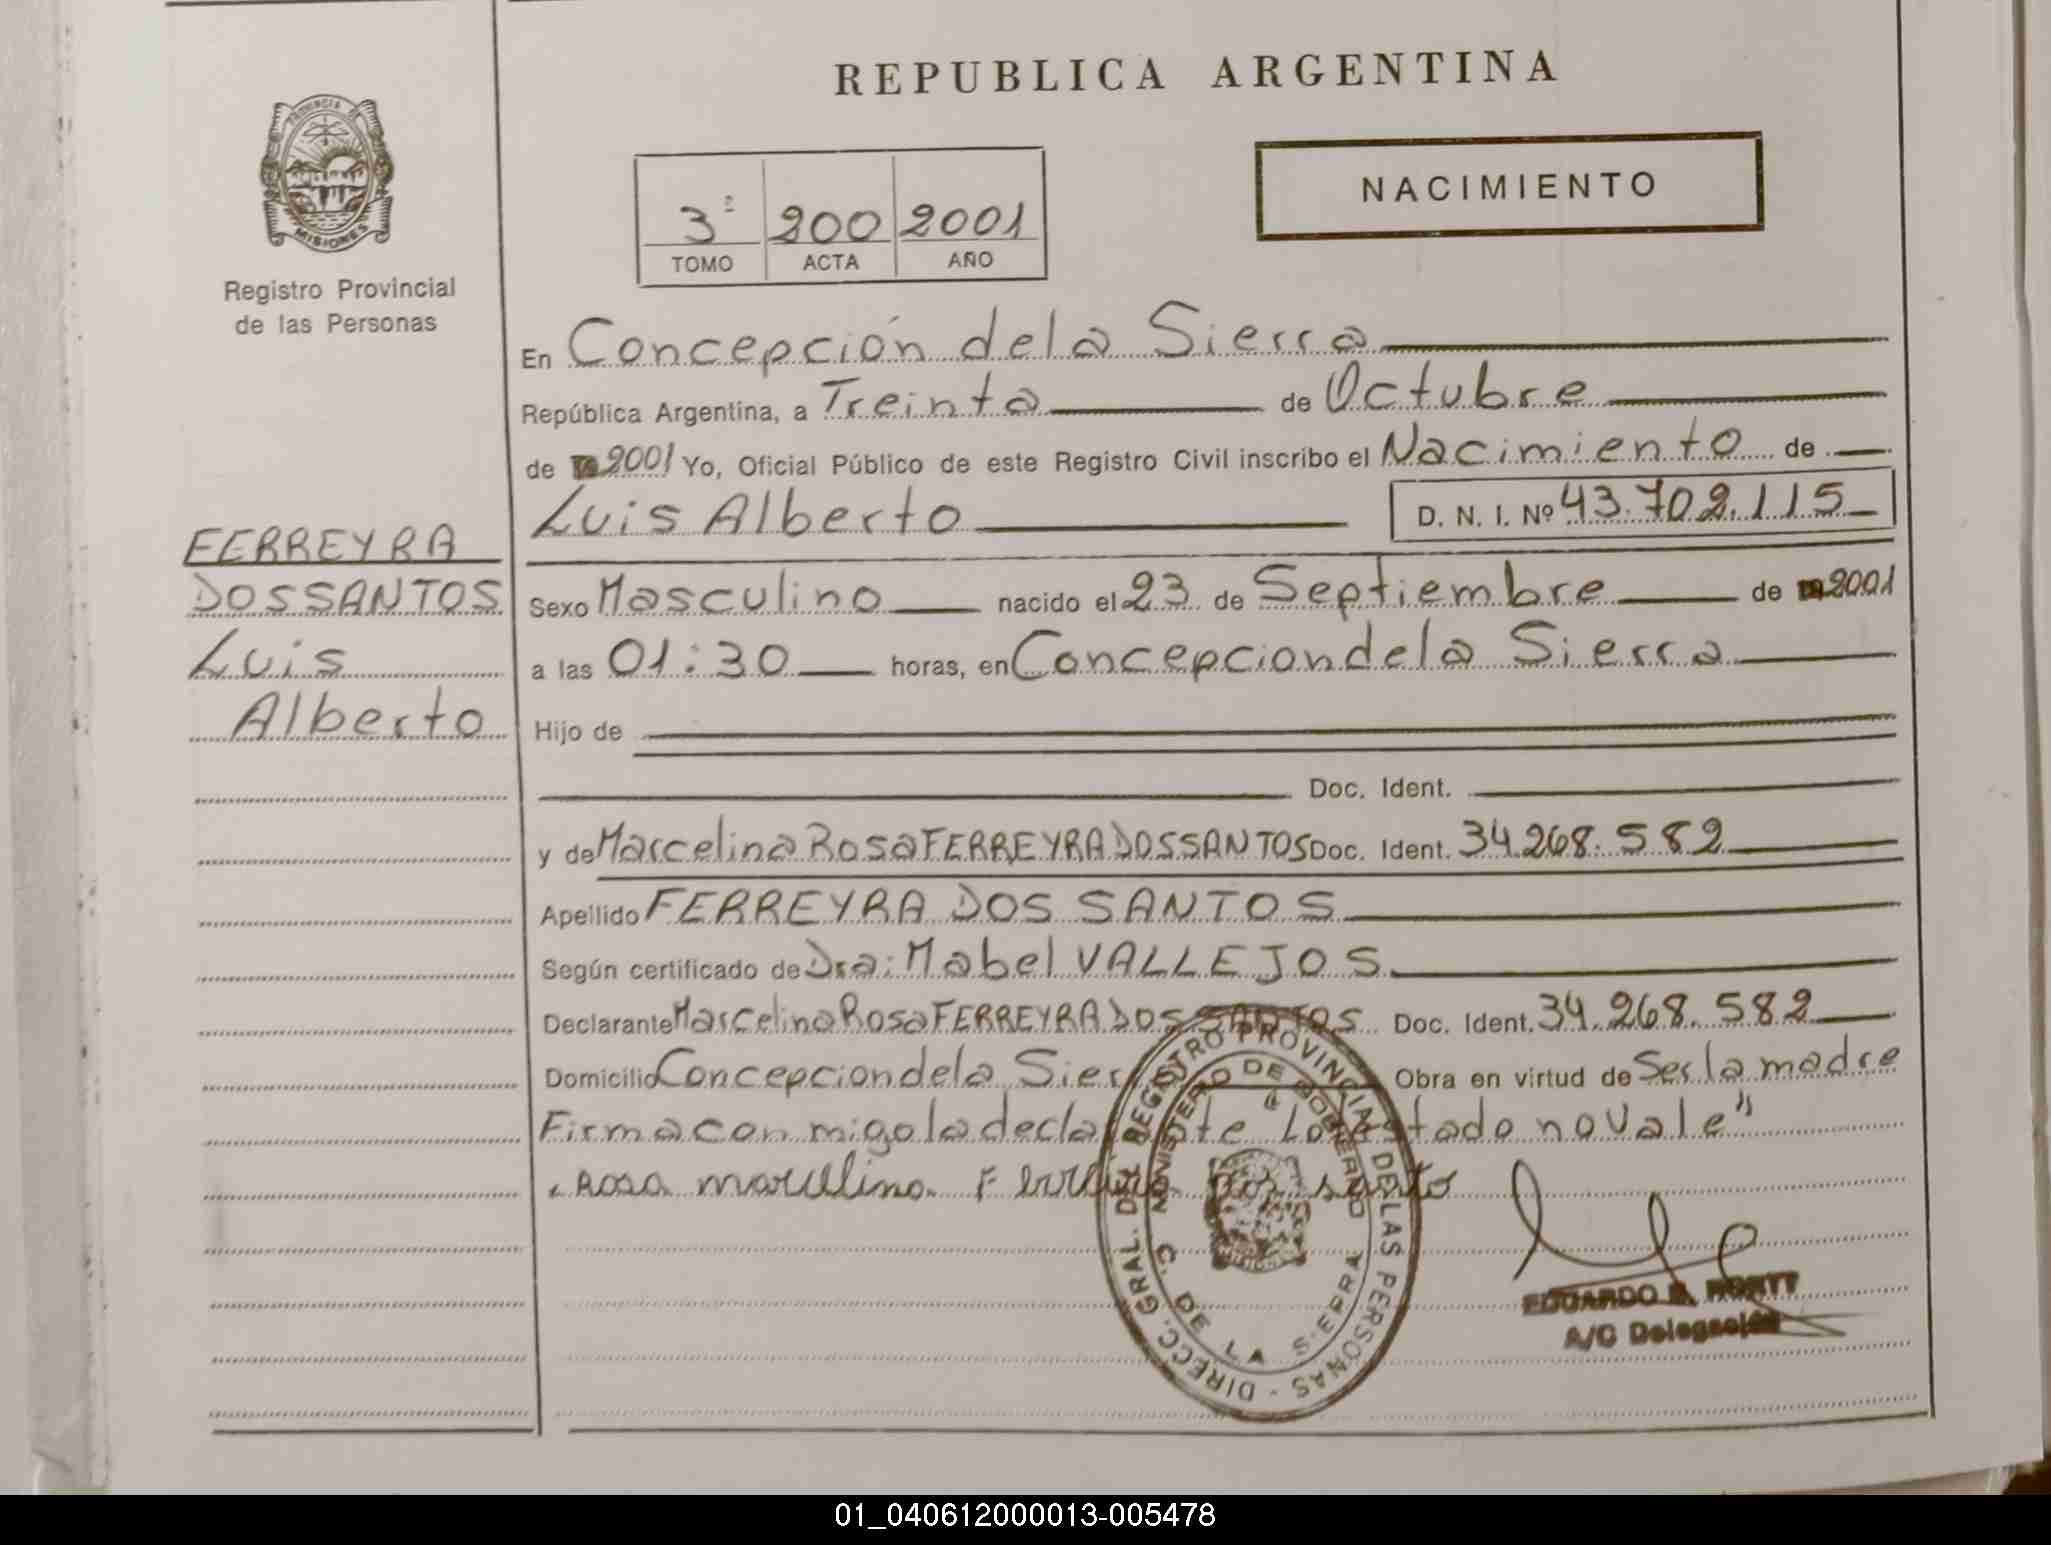 REPUBLICA ARGENTINA
PROVINCIA DE MISIONES
Registro Provincial
de las Personas
3º 200 2001
TOMO ACTA AÑO
NACIMIENTO
En Concepción de la Sierra
República Argentina, a Treinta de Octubre
de 2001 Yo, Oficial Público de este Registro Civil inscribo el Nacimiento de
Luis Alberto D. N. I. Nº 43.702.115
FERREYRA
DOS SANTOS
Luis
Alberto
Sexo Masculino nacido el 23 de Septiembre de 2001
a las 01:30 horas, en Concepcion de la Sierra
Hijo de
Doc. Ident.
y de Marcelina Rosa FERREYRA DOS SANTOS Doc. Ident. 34.268.582
Apellido FERREYRA DOS SANTOS
Según certificado de Dra: Mabel VALLEJOS
Declarante Marcelina Rosa FERREYRA DOS SANTOS Doc. Ident. 34.268.582
Domicilio Concepcion de la Sierra Obra en virtud de Ser la madre
Firma conmigo la declarante "Lo testado no vale"
Rosa marcelina Ferreira Dos santo
DIRECC. GRAL. DEL REGISTRO PROVINCIAL DE LAS PERSONAS
MINISTERIO DE GOBIERNO
C. DE LA SIERRA
EDUARDO
A/C Delegación
01_040612000013-005478